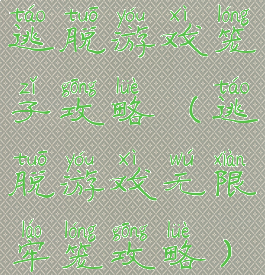 táo tuō yóu xì lóng
逃脱游戏笼
zǐ gōng lüè táo
子攻略（逃
tuō yóu xì wú xiàn
脱游戏无限
láo lóng gōng lüè
牢笼攻略）